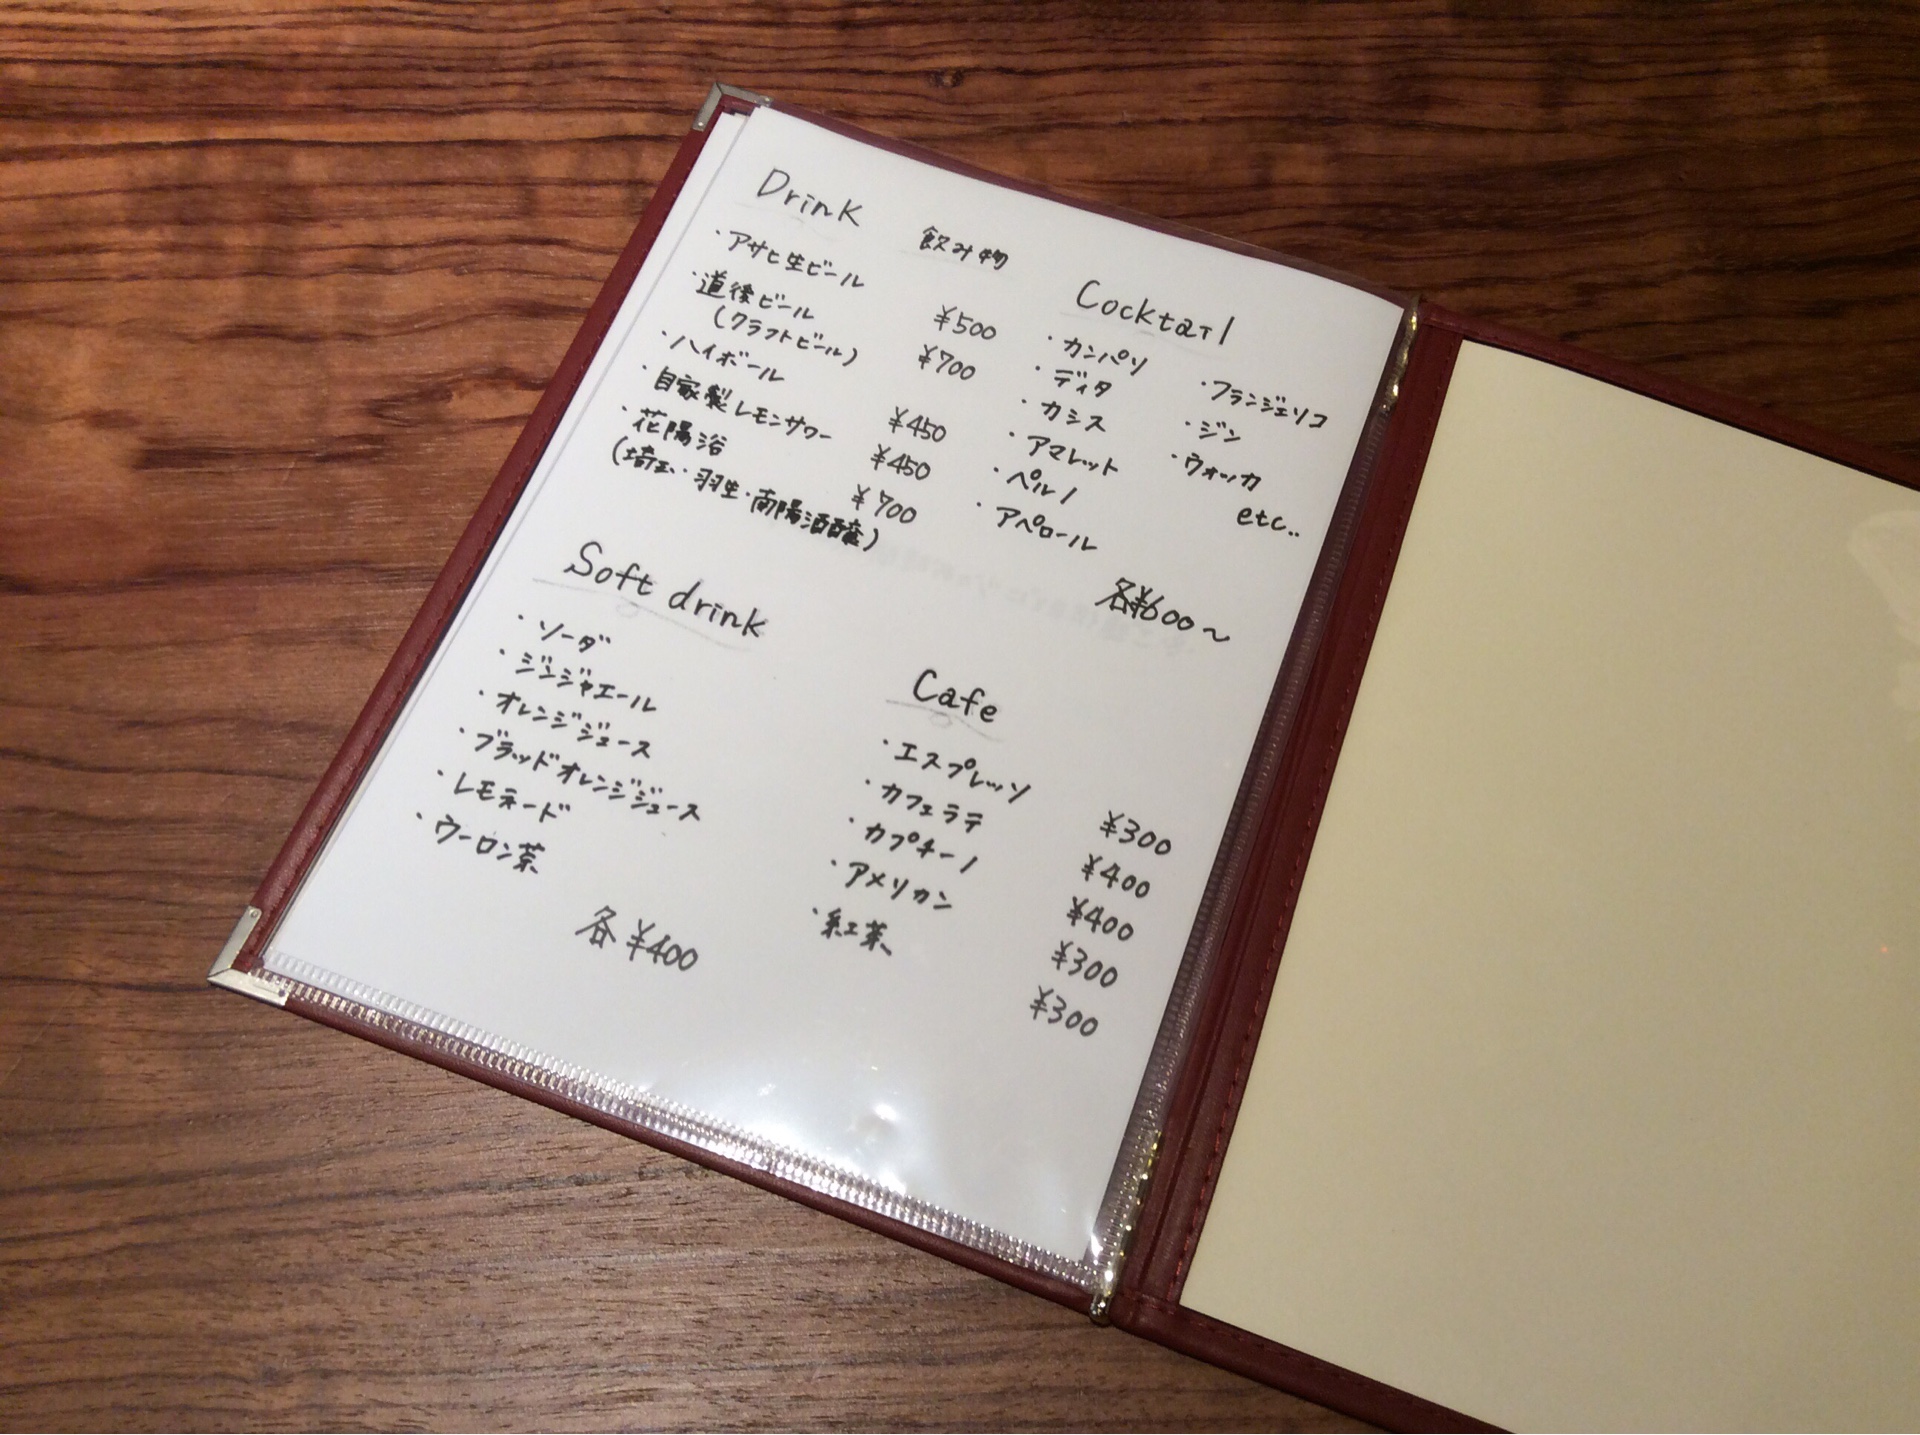 Drink 飲み物
・アサヒ生ビール ¥500
・道後ビール ¥700
(クラフトビール)
・ハイボール ¥450
・自家製レモンサワー ¥450
・花陽浴 ¥700
(埼玉・羽生・南陽酒醸)
Cocktail
・カンパリ
・ディタ
・カシス
・アマレット
・ペルノ
・アペロール
・フランジェリコ
・ジン
・ウォッカ
etc..
各¥600～
Soft drink
・ソーダ
・ジンジャエール
・オレンジジュース
・ブラッドオレンジジュース
・レモネード
・ウーロン茶
各¥400
Cafe
・エスプレッソ ¥300
・カフェラテ ¥400
・カプチーノ ¥400
・アメリカン ¥300
・紅茶 ¥300